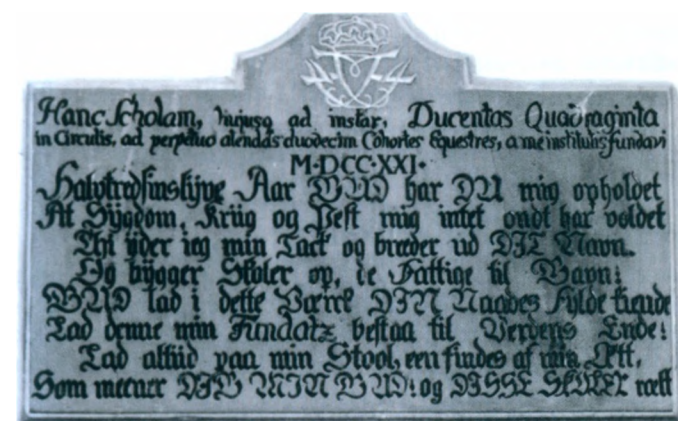 Hanc Scholam, hujusq ad instar, Ducentas Quadraginta
in Circulis, ad perpetuo alendas duodecim Cohortes Equestres, a me institutis fundavi
M·DCC·XXI·
Halvtredsinstÿve Aar GUD har DU mig opholdet
At Sÿgdom, Kriig og Pest mig intet ondt har voldet
Thi ÿder ieg min Tack og breeder ud DIT Navn.
Og bÿgger Skoler op, de Fattige til Gavn:
GUD lad i dette Værck DIN Naades Fylde kiende
Lad denne min Fundatz bestaa til Verdens Ende:
Lad altiid paa min Stool, een findes af min Ætt,
Som meener DIG MIN GUD: og DISSE SKOLER rætt